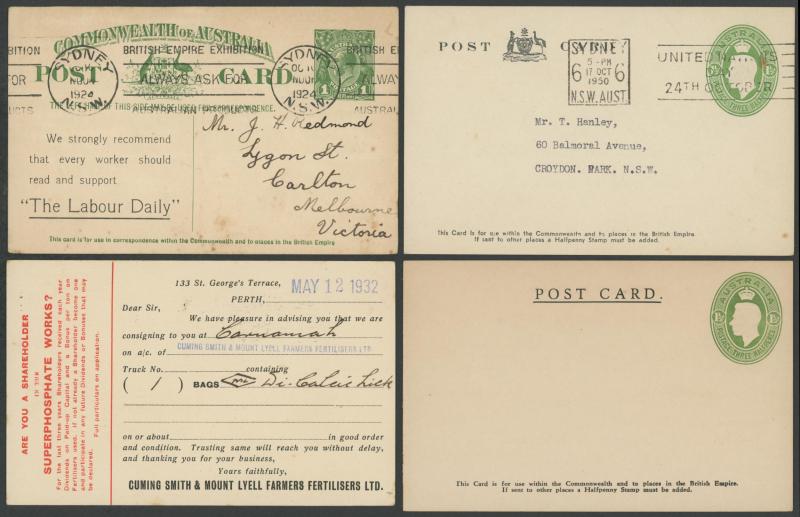 COMMONWEALTH OF AUSTRALIA
POST CARD
SYDNEY
1924
N.S.W.
BRITISH EMPIRE EXHIBITION
ALWAYS ASK FOR
AUSTRALIAN
SYDNEY
1924
N.S.W.
BRITISH E
ALWAYS
AUSTRAL
IBITION
FOR
UCTS
1
We strongly recommend
that every worker should
read and support
"The Labour Daily"
Mr. J. H. Redmond
Lygon St.
Carlton
Melbourne
Victoria
This card is for use in correspondence within the Commonwealth and to places in the British Empire
POST
SYDNEY
5 - PM
6 17 OCT 6
1950
N.S.W. AUST
UNITED
24TH OCTOBER
Mr. T. Hanley,
60 Balmoral Avenue,
CROYDON. PARK. N.S.W.
This Card is for use within the Commonwealth and to places in the British Empire.
If sent to other places a Halfpenny Stamp must be added.
ARE YOU A SHAREHOLDER
IN OUR
SUPERPHOSPHATE WORKS?
For the last three years Shareholders received each year
Dividends on Paid-up Capital and a Bonus per ton on
Fertilisers used. If not already a Shareholder become one
and participate in any future Dividends or Bonuses that may
be declared. Full particulars on application.
133 St. George's Terrace,
PERTH, MAY 12 1932
Dear Sir,
We have pleasure in advising you that we are
consigning to you at Carnamah
on a/c. of CUMING SMITH & MOUNT LYELL FARMERS FERTILISERS LTD.
Truck No. containing
( 1 ) BAGS Di-Calcic Lick
on or about in good order
and condition. Trusting same will reach you without delay,
and thanking you for your business,
Yours faithfully,
CUMING SMITH & MOUNT LYELL FARMERS FERTILISERS LTD.
POST CARD.
AUSTRALIA
1½ 1½
POSTAGE THREE HALFPENCE
This Card is for use within the Commonwealth and to places in the British Empire.
If sent to other places a Halfpenny Stamp must be added.